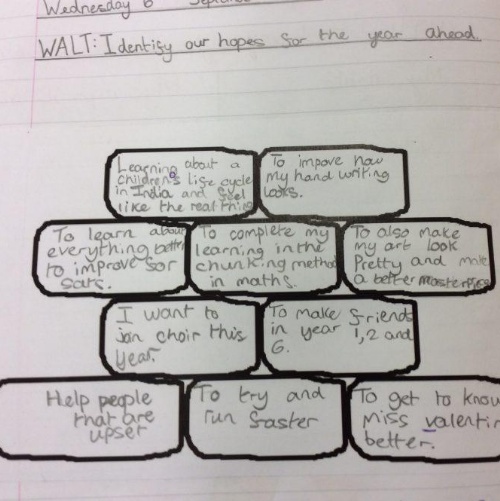 Wednesday 6 September
WALT: Identify our hopes for the year ahead.
Learning about a
children's life cycle
in India and feel
like the real thing
To impove how
my hand writing
looks.
To learn about
everything better
to improve for
Sats.
To complete my
learning in the
chunking method
in maths.
To also make
my art look
Pretty and make
a better masterpiece
I want to
join choir this
year.
To make friends
in year 1, 2 and
6.
Help people
that are
upset
To try and
run faster
To get to know
miss valentin
better.